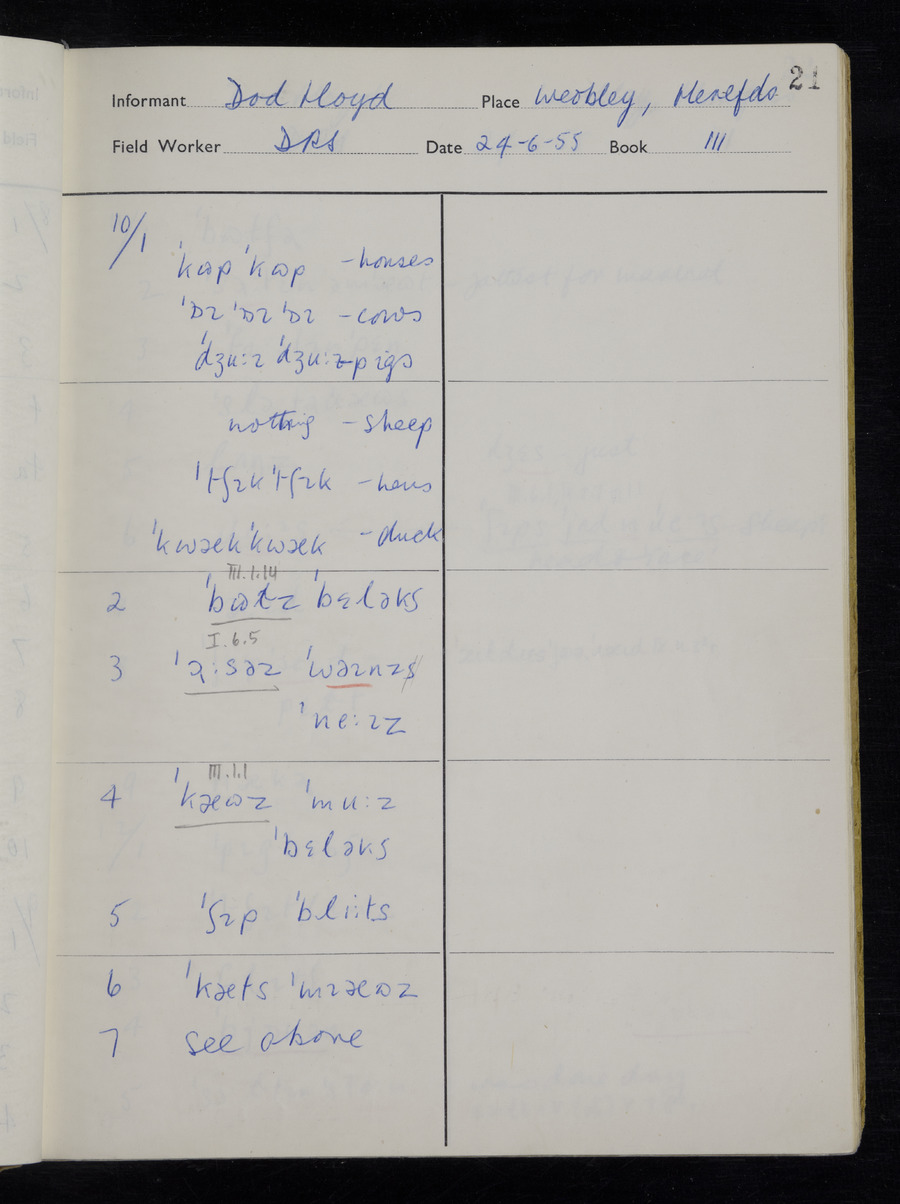 21
Informant Dod Lloyd Place Weobley, Herefds
Field Worker DRS Date 24-6-55 Book III
10/1
ˈkɷp ˈkɷp – horses
ˈɒɪ ˈɒɪ ˈɒɪ – cows
ˈdʒu:ɪ ˈdʒu:ɪ – pigs
nothing – sheep
ˈtʃɪk ˈtʃɪk – hens
ˈkwæk ˈkwæk – duck
III.1.14
2 ˈbɷɫz ˈbɛləks
I.6.5
3 ˈɑ:səz ˈwəɪnɪz
ˈne:ɪz
III.1.1
4 ˈkæɷz ˈmu:z
ˈbɛləks
5 ˈʃɪp ˈbli:ts
6 ˈkæts ˈmɪæɷz
7 see above